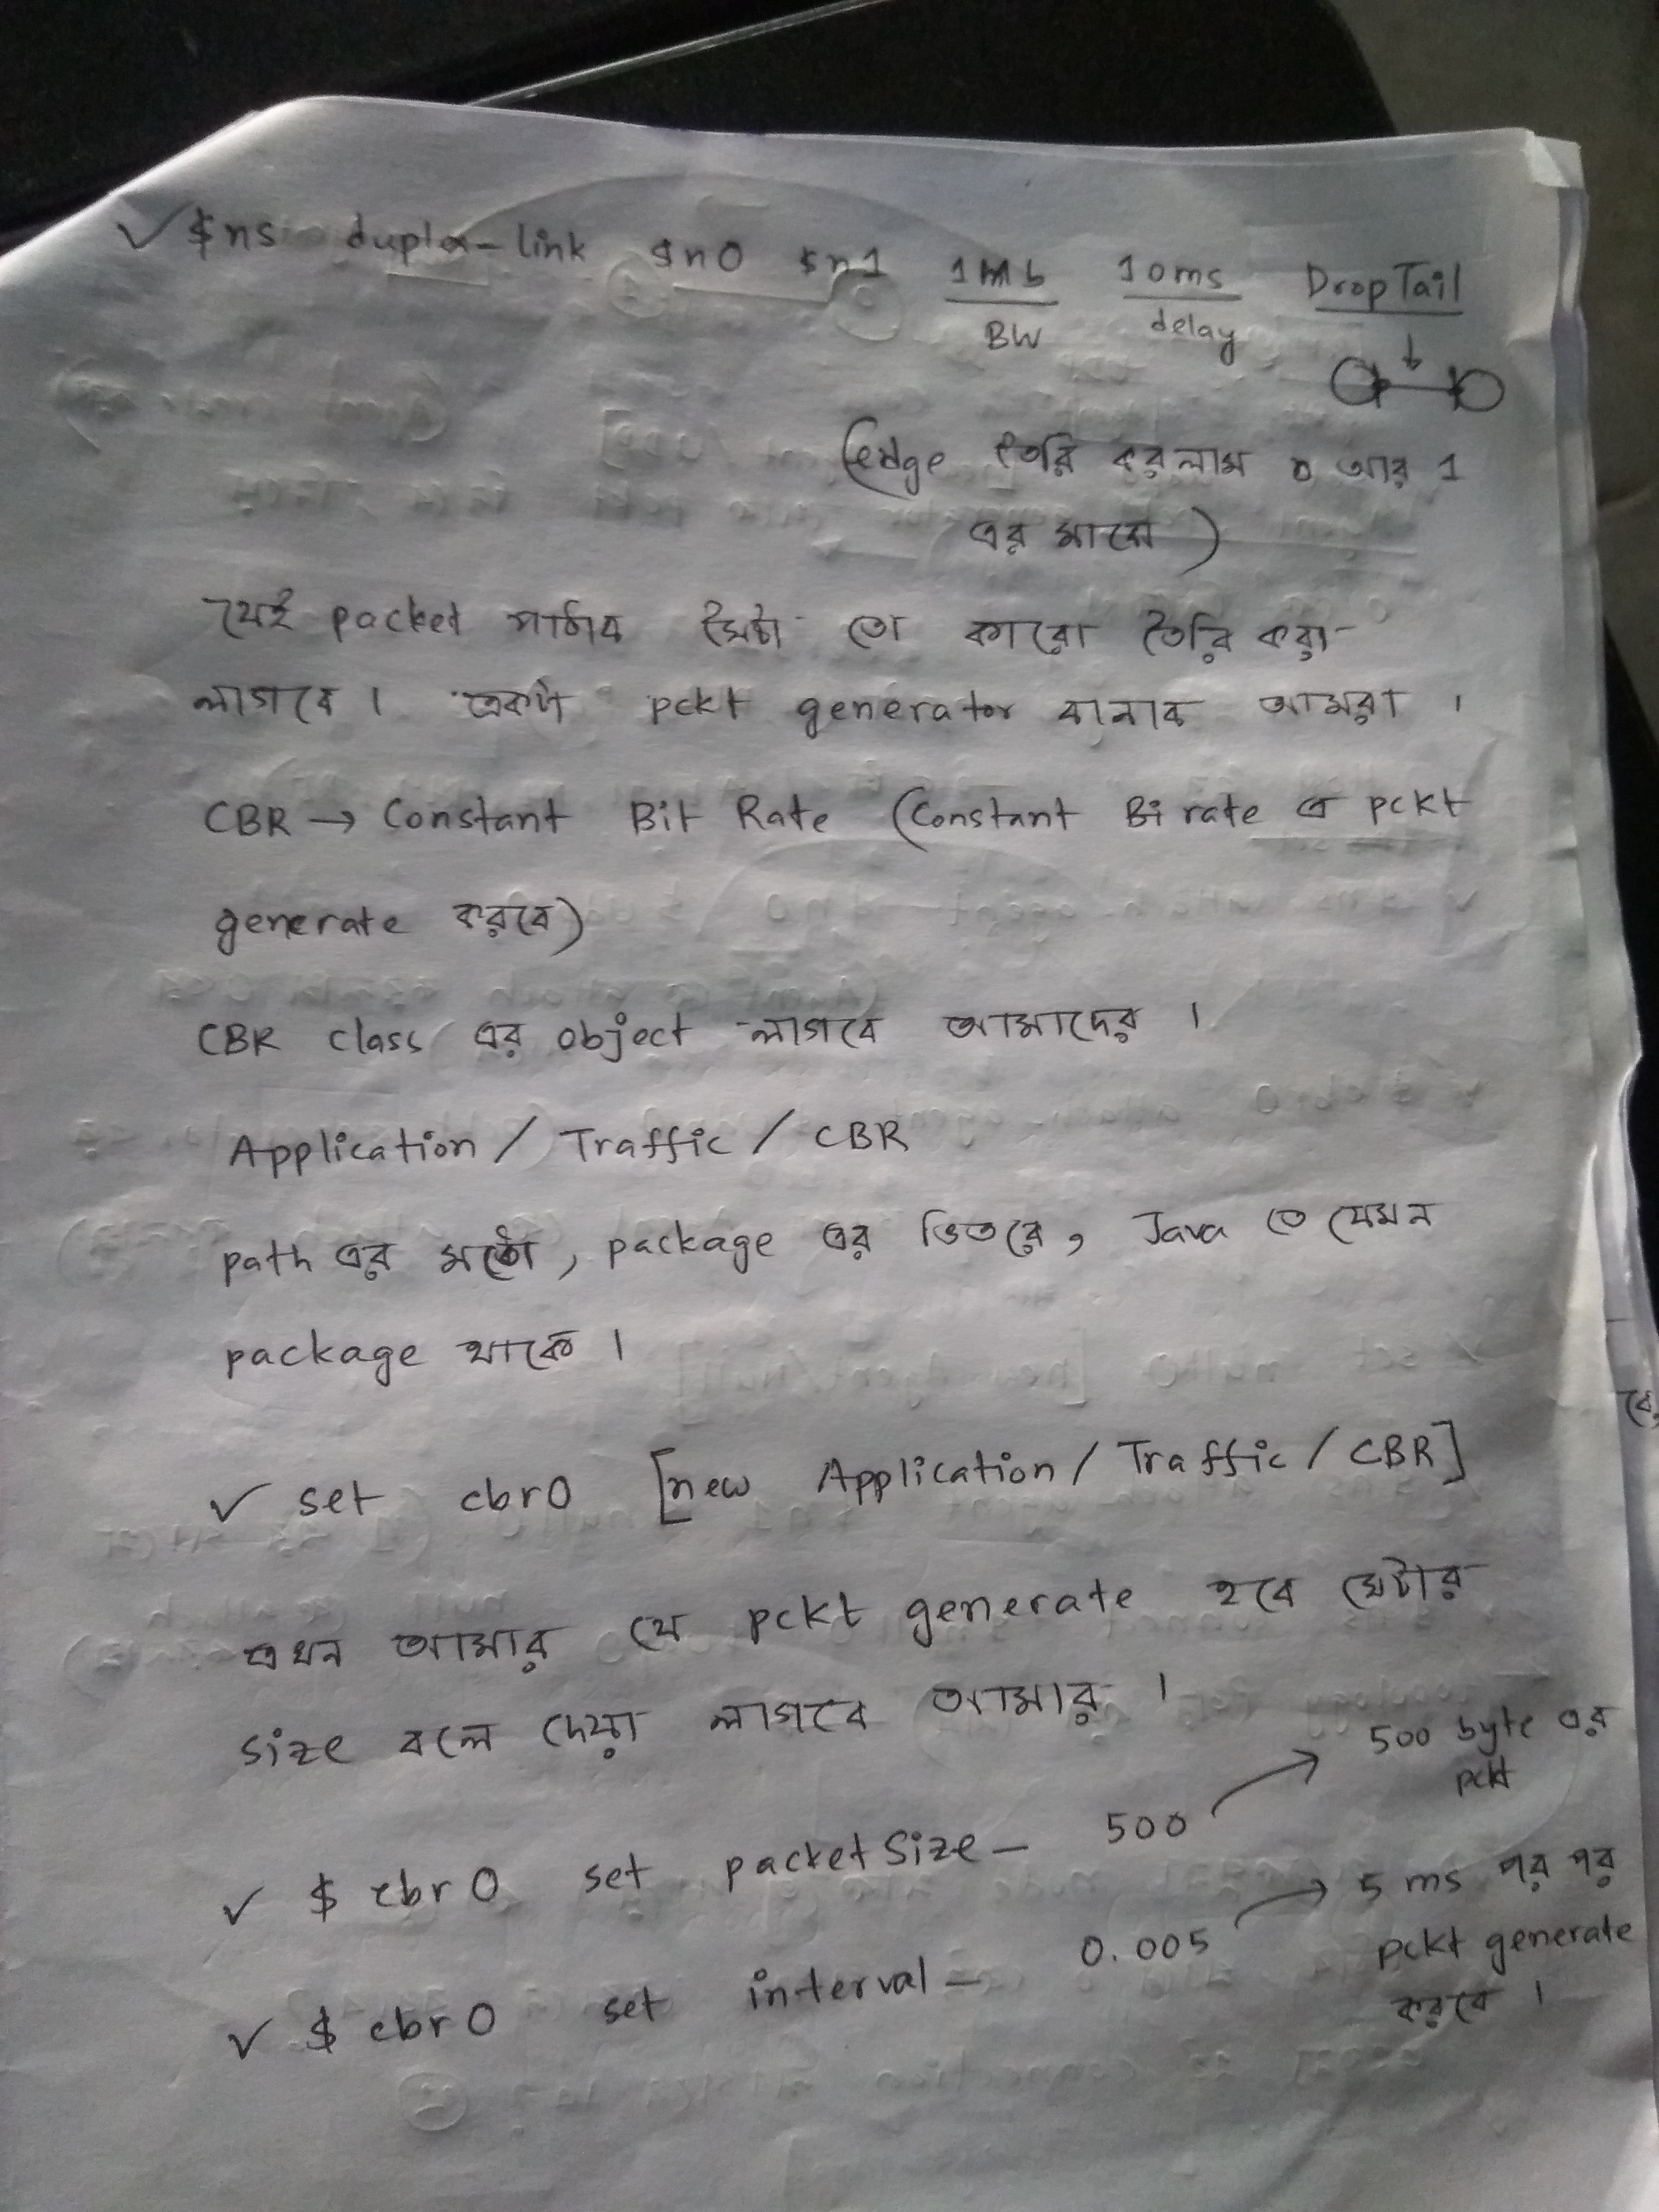 ✓ $ns duplex-link $n0 $n1 1Mb 10ms DropTail
BW delay
(edge তৈরি করলাম 0 আর 1
এর মাঝে)
যেই packet পাঠাব সেটা তো কারো তৈরি করা
লাগবে। একটা pckt generator বানাব আমরা।
CBR → Constant Bit Rate (Constant Bi rate এ pckt
generate করবে)
CBR class এর object লাগবে আমাদের।
Application / Traffic / CBR
path এর মতো, package এর ভিতরে, Java তে যেমন
package থাকে।
✓ set cbr0 [new Application / Traffic / CBR]
এখন আমার যে pckt generate হবে সেটার
size বলে দেয়া লাগবে আমার।
500 byte এর
pckt
✓ $ cbr0 set packetSize_ 500
5 ms পর পর
pckt generate
করবে।
✓ $ cbr0 set interval_ 0.005